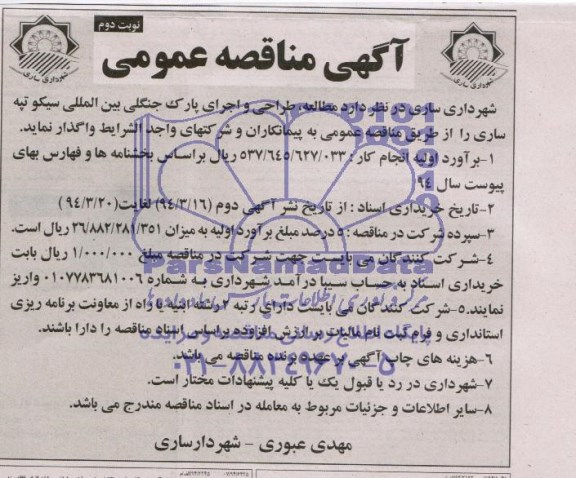 نوبت دوم
آگهی مناقصه عمومی
شهرداری ساری
شهرداری ساری
شهرداری ساری در نظر دارد مطالعه، طراحی و اجرای پارک جنگلی بین المللی سیکو تپه
ساری را از طریق مناقصه عمومی به پیمانکاران و شرکتهای واجد الشرایط واگذار نماید.
۱-برآورد اولیه انجام کار : ۵۳۷/۶۴۵/۶۲۷/۰۳۳ ریال براساس بخشنامه ها و فهارس بهای
پیوست سال ۹۴
۲-تاریخ خریداری اسناد : از تاریخ نشر آگهی دوم (۹۴/۳/۱۶) لغایت(۹۴/۳/۲۰)
۳-سپرده شرکت در مناقصه : ۵ درصد مبلغ برآورد اولیه به میزان ۲۶/۸۸۲/۲۸۱/۳۵۱ ریال است.
۴-شرکت کنندگان می بایست جهت شرکت در مناقصه مبلغ ۱/۰۰۰/۰۰۰ ریال بابت
خریداری اسناد به حساب سیبا درآمد شهرداری به شماره ۰۱۰۷۷۸۳۶۸۱۰۰۶ واریز
نمایند.۵-شرکت کنندگان می بایست دارای رتبه ۲ رشته ابنیه یا راه از معاونت برنامه ریزی
استانداری و فرم ثبت نام مالیات بر ارزش افزوده براساس اسناد مناقصه را دارا باشند.
۶-هزینه های چاپ آگهی بر عهده برنده مناقصه می باشد.
۷-شهرداری در رد یا قبول یک یا کلیه پیشنهادات مختار است.
۸-سایر اطلاعات و جزئیات مربوط به معامله در اسناد مناقصه مندرج می باشد.
مهدی عبوری - شهردارساری
ParsNamadData
۰۲۱-۸۸۳۴۹۶۷۰-۵